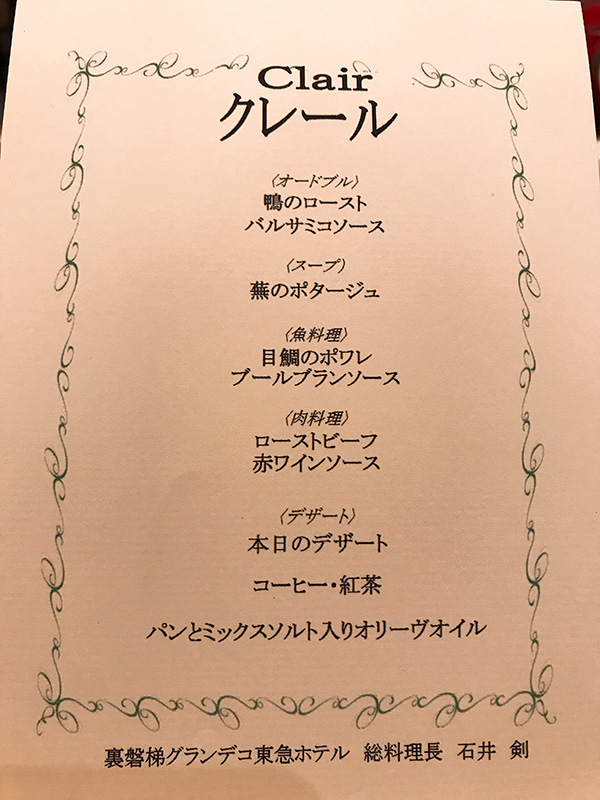 Clair
クレール
〈オードブル〉
鴨のロースト
バルサミコソース
〈スープ〉
蕪のポタージュ
〈魚料理〉
目鯛のポワレ
ブールブランソース
〈肉料理〉
ローストビーフ
赤ワインソース
〈デザート〉
本日のデザート
コーヒー・紅茶
パンとミックスソルト入りオリーヴオイル
裏磐梯グランデコ東急ホテル 総料理長 石井 剣